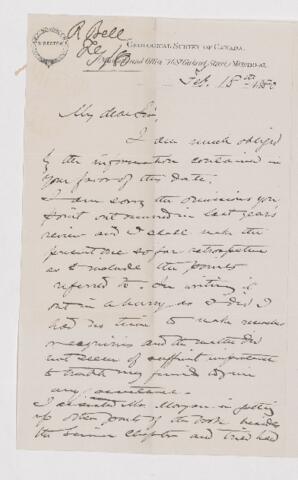 R Bell
GEOLOGICAL SURVEY OF CANADA.
Museum and Office, 76 St Gabriel Street, MONTREAL
Feb. 15th 1880
My dear Sir,
I am much obliged
by the information contained in
your favor of this date.
I am sorry the omissions you
point out occurred in last years
review and I shall make the
present one so far retrospective
as to include the points
referred to. In writing it
out in a hurry as I did I
had no time to make
enquiries and the matter did
not seem of sufficient importance
to trouble my friends to give
any assistance.
I assisted Mr Morgan in
up other parts of the book besides
the Science Chapter and tried hard